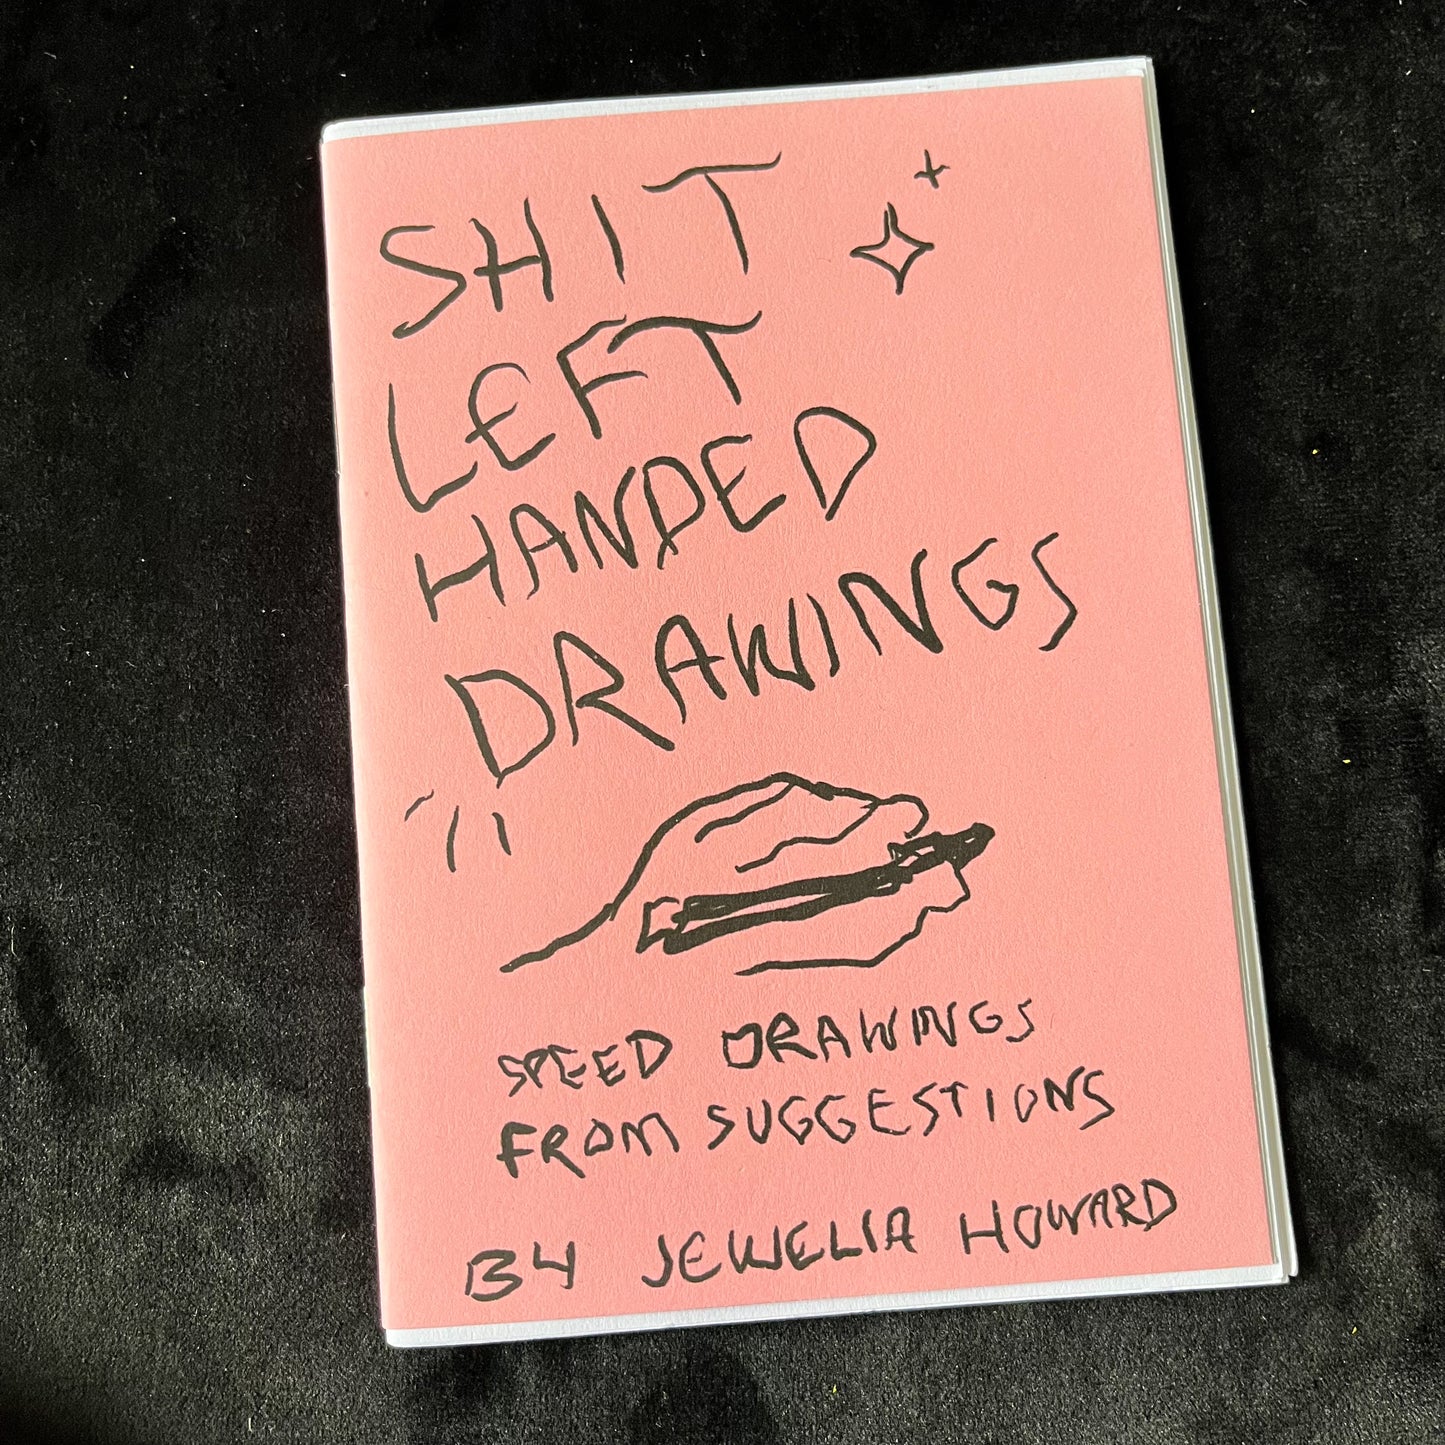 SHIT
LEFT
HANDED
DRAWINGS
SPEED DRAWINGS
FROM SUGGESTIONS
BY JEWELIA HOWARD